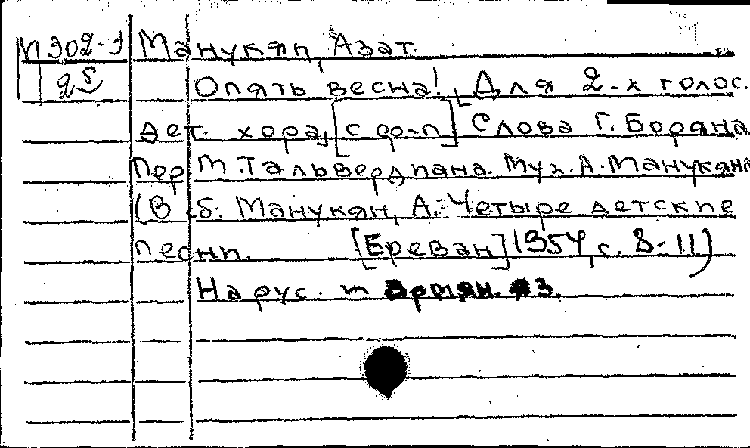 М302-1 Манукян, Азат.
25 Опять весна! [Для 2-х голос.
дет. хора, [с фо-п] Слова Г. Боряна
Пер. М. Тальвердиана. Муз. А. Манукяна
(В сб. Манукян, А. Четыре детские
песни. [Ереван] 1954, с. 8-11)
На рус. и армян. яз.